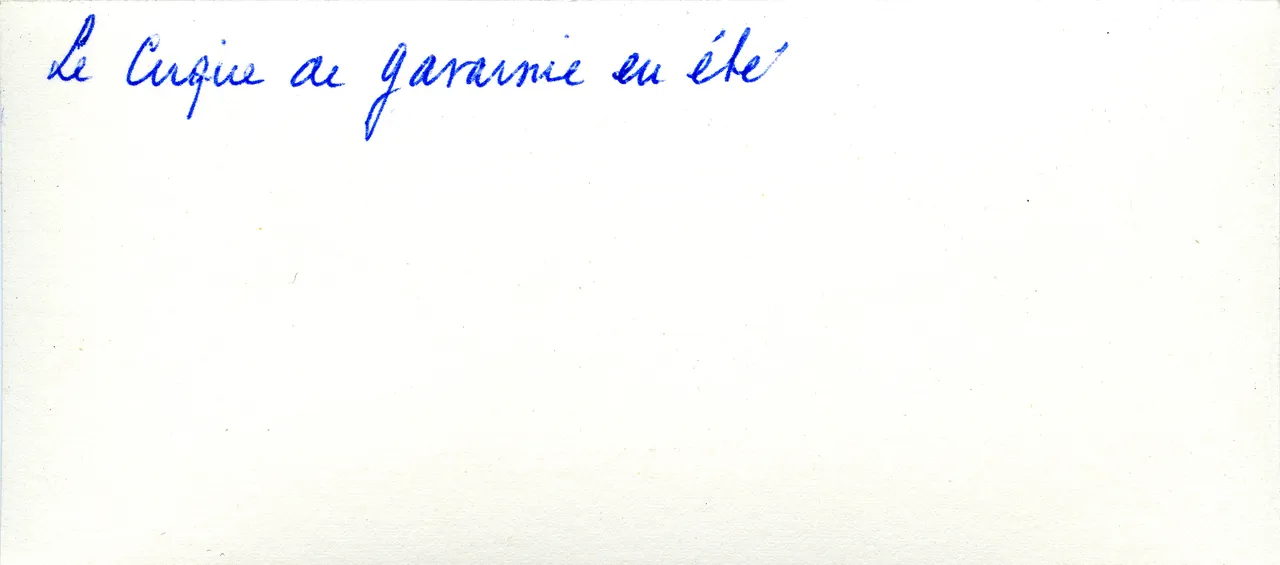 Le Cirque de Gavarnie en été